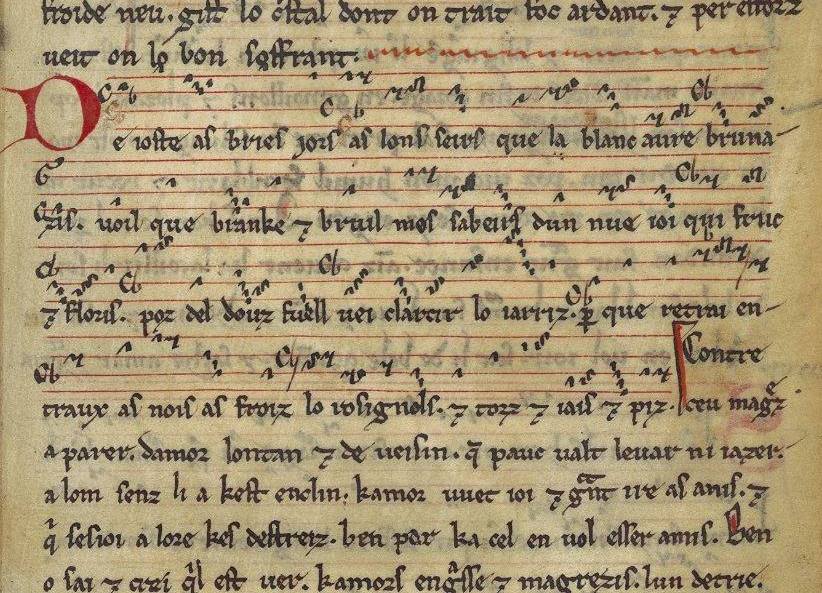 froide neu. gist lo cristal dont on trait foc ardant. ⁊ per
ueit on lo bon soffrant.
De ioste as bries iors as lons seirs que la blanc aure bruna-
zis. uoil que branke ⁊ bruil mos sabeirs dun nue ioi qui fruc
⁊ floris. por del douz fuell uei clarcir lo iarriz. ꝑ que retrai en-
traux as nois as froiz lo rosignols. ⁊ torz ⁊ iais ⁊ piz.
Contre
ceu magꝛ
a parer. damor lontan ⁊ de ueisin. q̄ pauc ualt leuar ni iazer.
a lom senz li a kest enclin. kamor uuet ioi ⁊ gͣnt ire as anis. ⁊
a lore kes destreiz. ben par ka cel en uol esser amis. Ben
o sai ⁊ crei est uer. kamors engͣsse ⁊ magrezis. lun